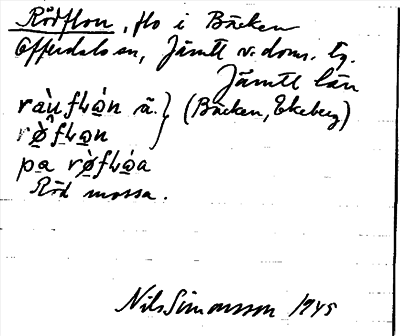 Rödflon, flo i Bäcken
Offerdals sn, Jämtl v. doms. tg.
Jämtl län
ràu̯fʟò̱n ä. } (Bäcken, Ekeberg)
rø̱̀fʟò̱n
pa̱ rø̱̀fʟò̱a
Röd mossa.
Nils Simonsson 1945